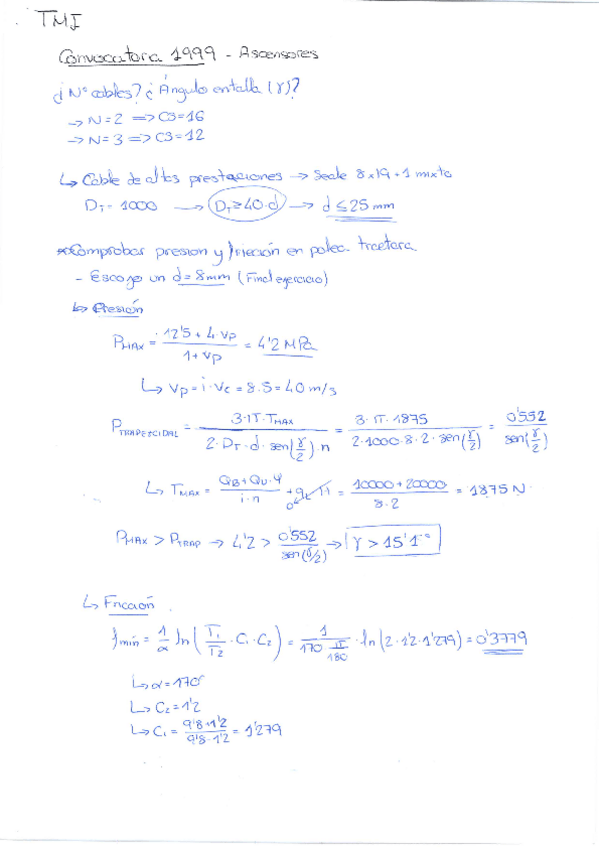 TMI
Convocatora 1999 - Ascensores
¿Nº cables? ¿Ángulo entalla (γ)?
→ N=2 => CS=16
→ N=3 => CS=12
↳ Cable de altas prestaciones → Seale 8x19+1 mixto
D_T = 1000 → D_T ≥ 40·d → d ≤ 25 mm
*Comprobar presion y fricción en polea tractora
- Escojo un d=8mm (Final ejercicio)
↳ Presión
P_MAX = (12'5 + 4·Vp)/(1+Vp) = 4'2 MPa
↳ Vp = i·Vc = 8·5 = 40 m/s
P_TRAPEZCIDAL = (3·π·T_MAX)/(2·D_T·d·sen(γ/2)·n) = (3·π·1875)/(2·1000·8·2·sen(γ/2)) = 0'552/sen(γ/2)
↳ T_MAX = (Q_B+Q_U·4)/(i·n) + q_c·H 0 = (10000+20000)/(8·2) = 1875 N
P_MAX > P_TRAP → 4'2 > 0'552/sen(γ/2) → γ > 15'1°
↳ Fricción
f_mín = 1/α ln(T₁/T₂·C₁·C₂) = 1/(170 π/180)·ln(2·1'2·1'279) = 0'3779
↳ α=170°
↳ C₂=1'2
↳ C₁ = (9'8+1'2)/(9'8-1'2) = 1'279